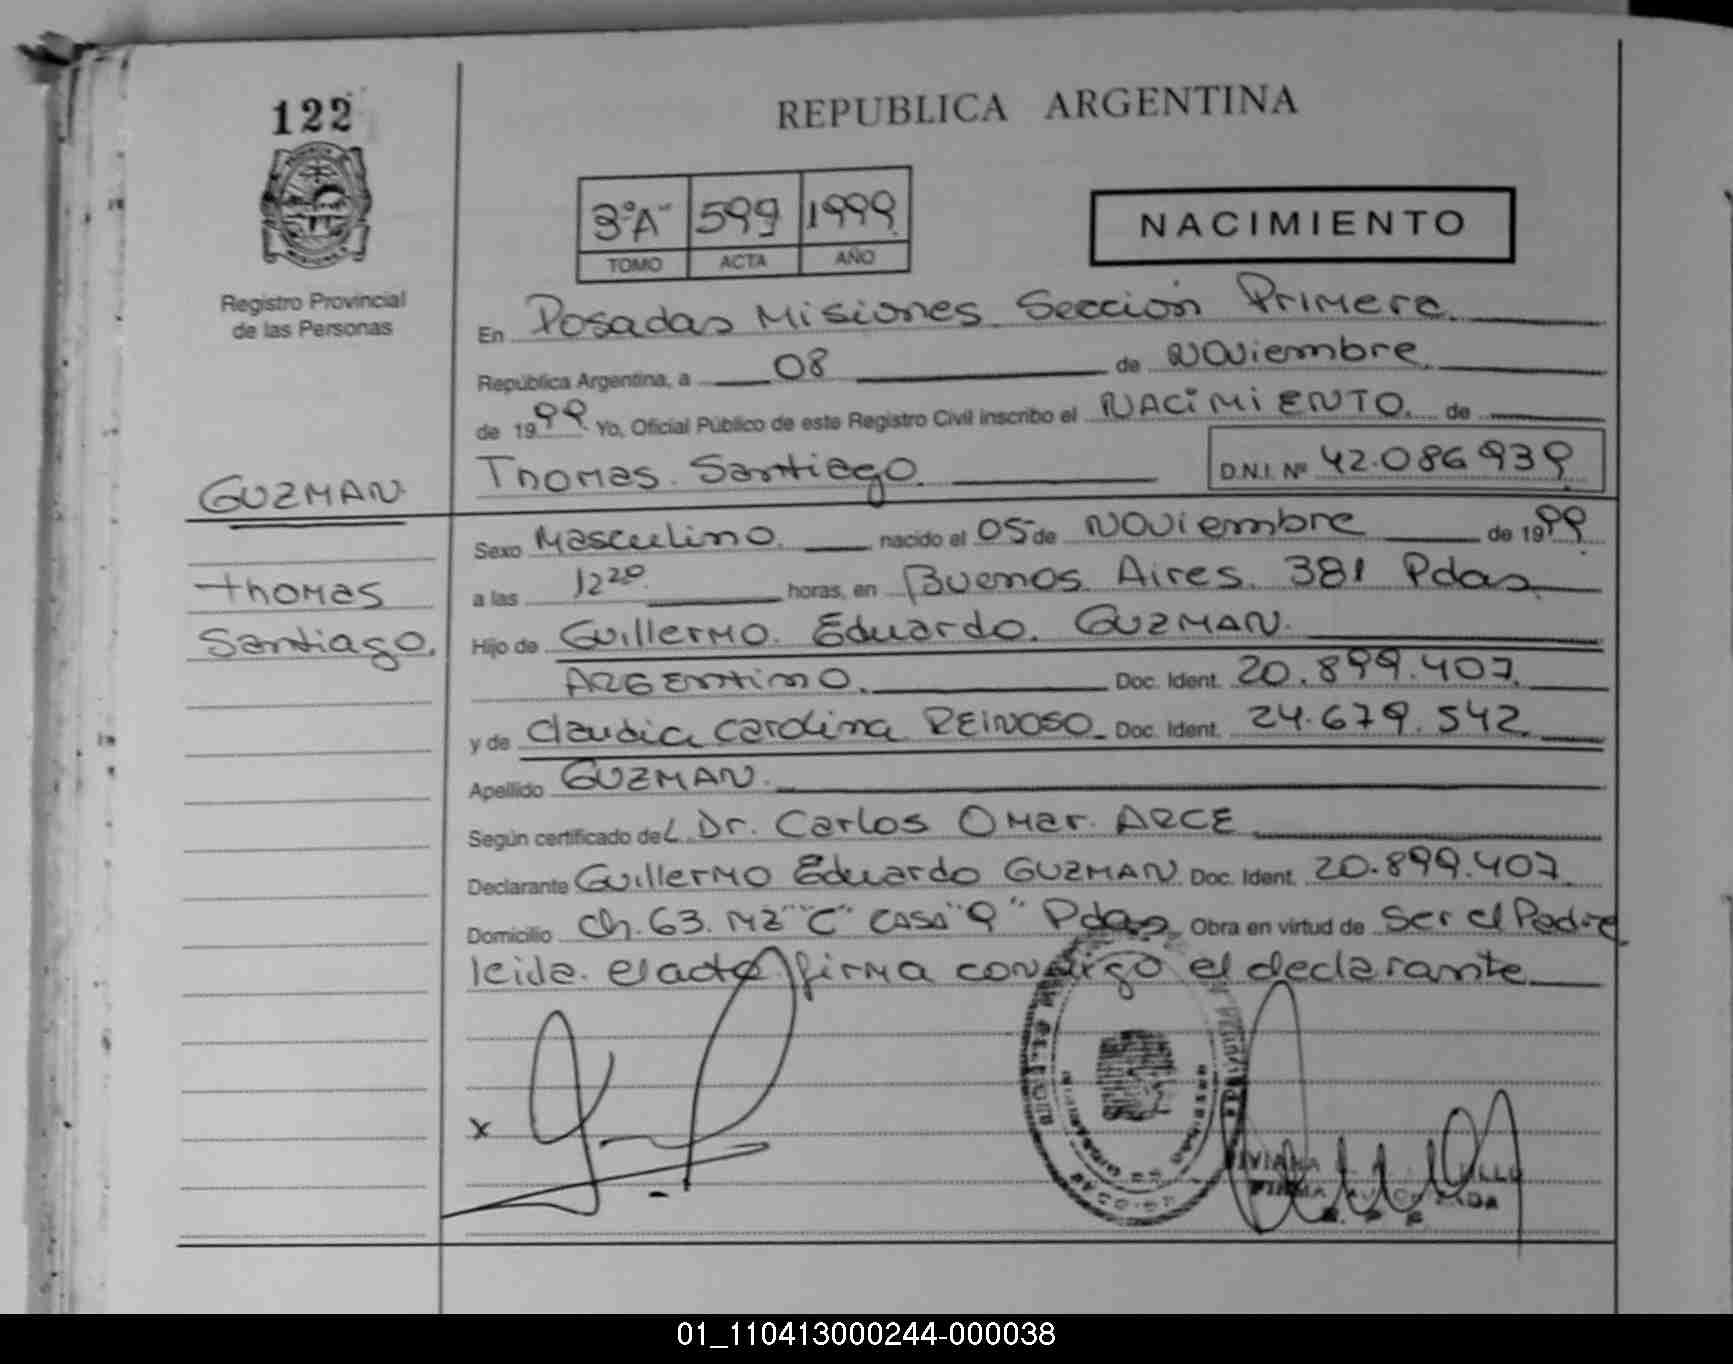 122
REPUBLICA ARGENTINA
3º"A" 599 1999
TOMO ACTA AÑO
NACIMIENTO
Registro Provincial
de las Personas
En Posadas Misiones Sección Primera
República Argentina, a 08 de Noviembre
de 1999 Yo, Oficial Público de este Registro Civil inscribo el NACIMIENTO de
Thomas Santiago D.N.I. Nº 42.086.939
GUZMAN
Sexo Masculino nacido el 05 de Noviembre de 1999
Thomas
a las 12 20 horas, en Buenos Aires 381 Pdas
Santiago
Hijo de Guillermo Eduardo GUZMAN
ARGENTINO Doc. Ident. 20.899.407
y de Claudia Carolina REINOSO Doc. Ident. 24.679.542
Apellido GUZMAN
Según certificado del Dr. Carlos Omar ARCE
Declarante Guillermo Eduardo GUZMAN Doc. Ident. 20.899.407
Domicilio Ch. 63. MZ "C" CASA "9" Pdas Obra en virtud de Ser el Padre
leida el acta firma conmigo el declarante
x
01_110413000244-000038